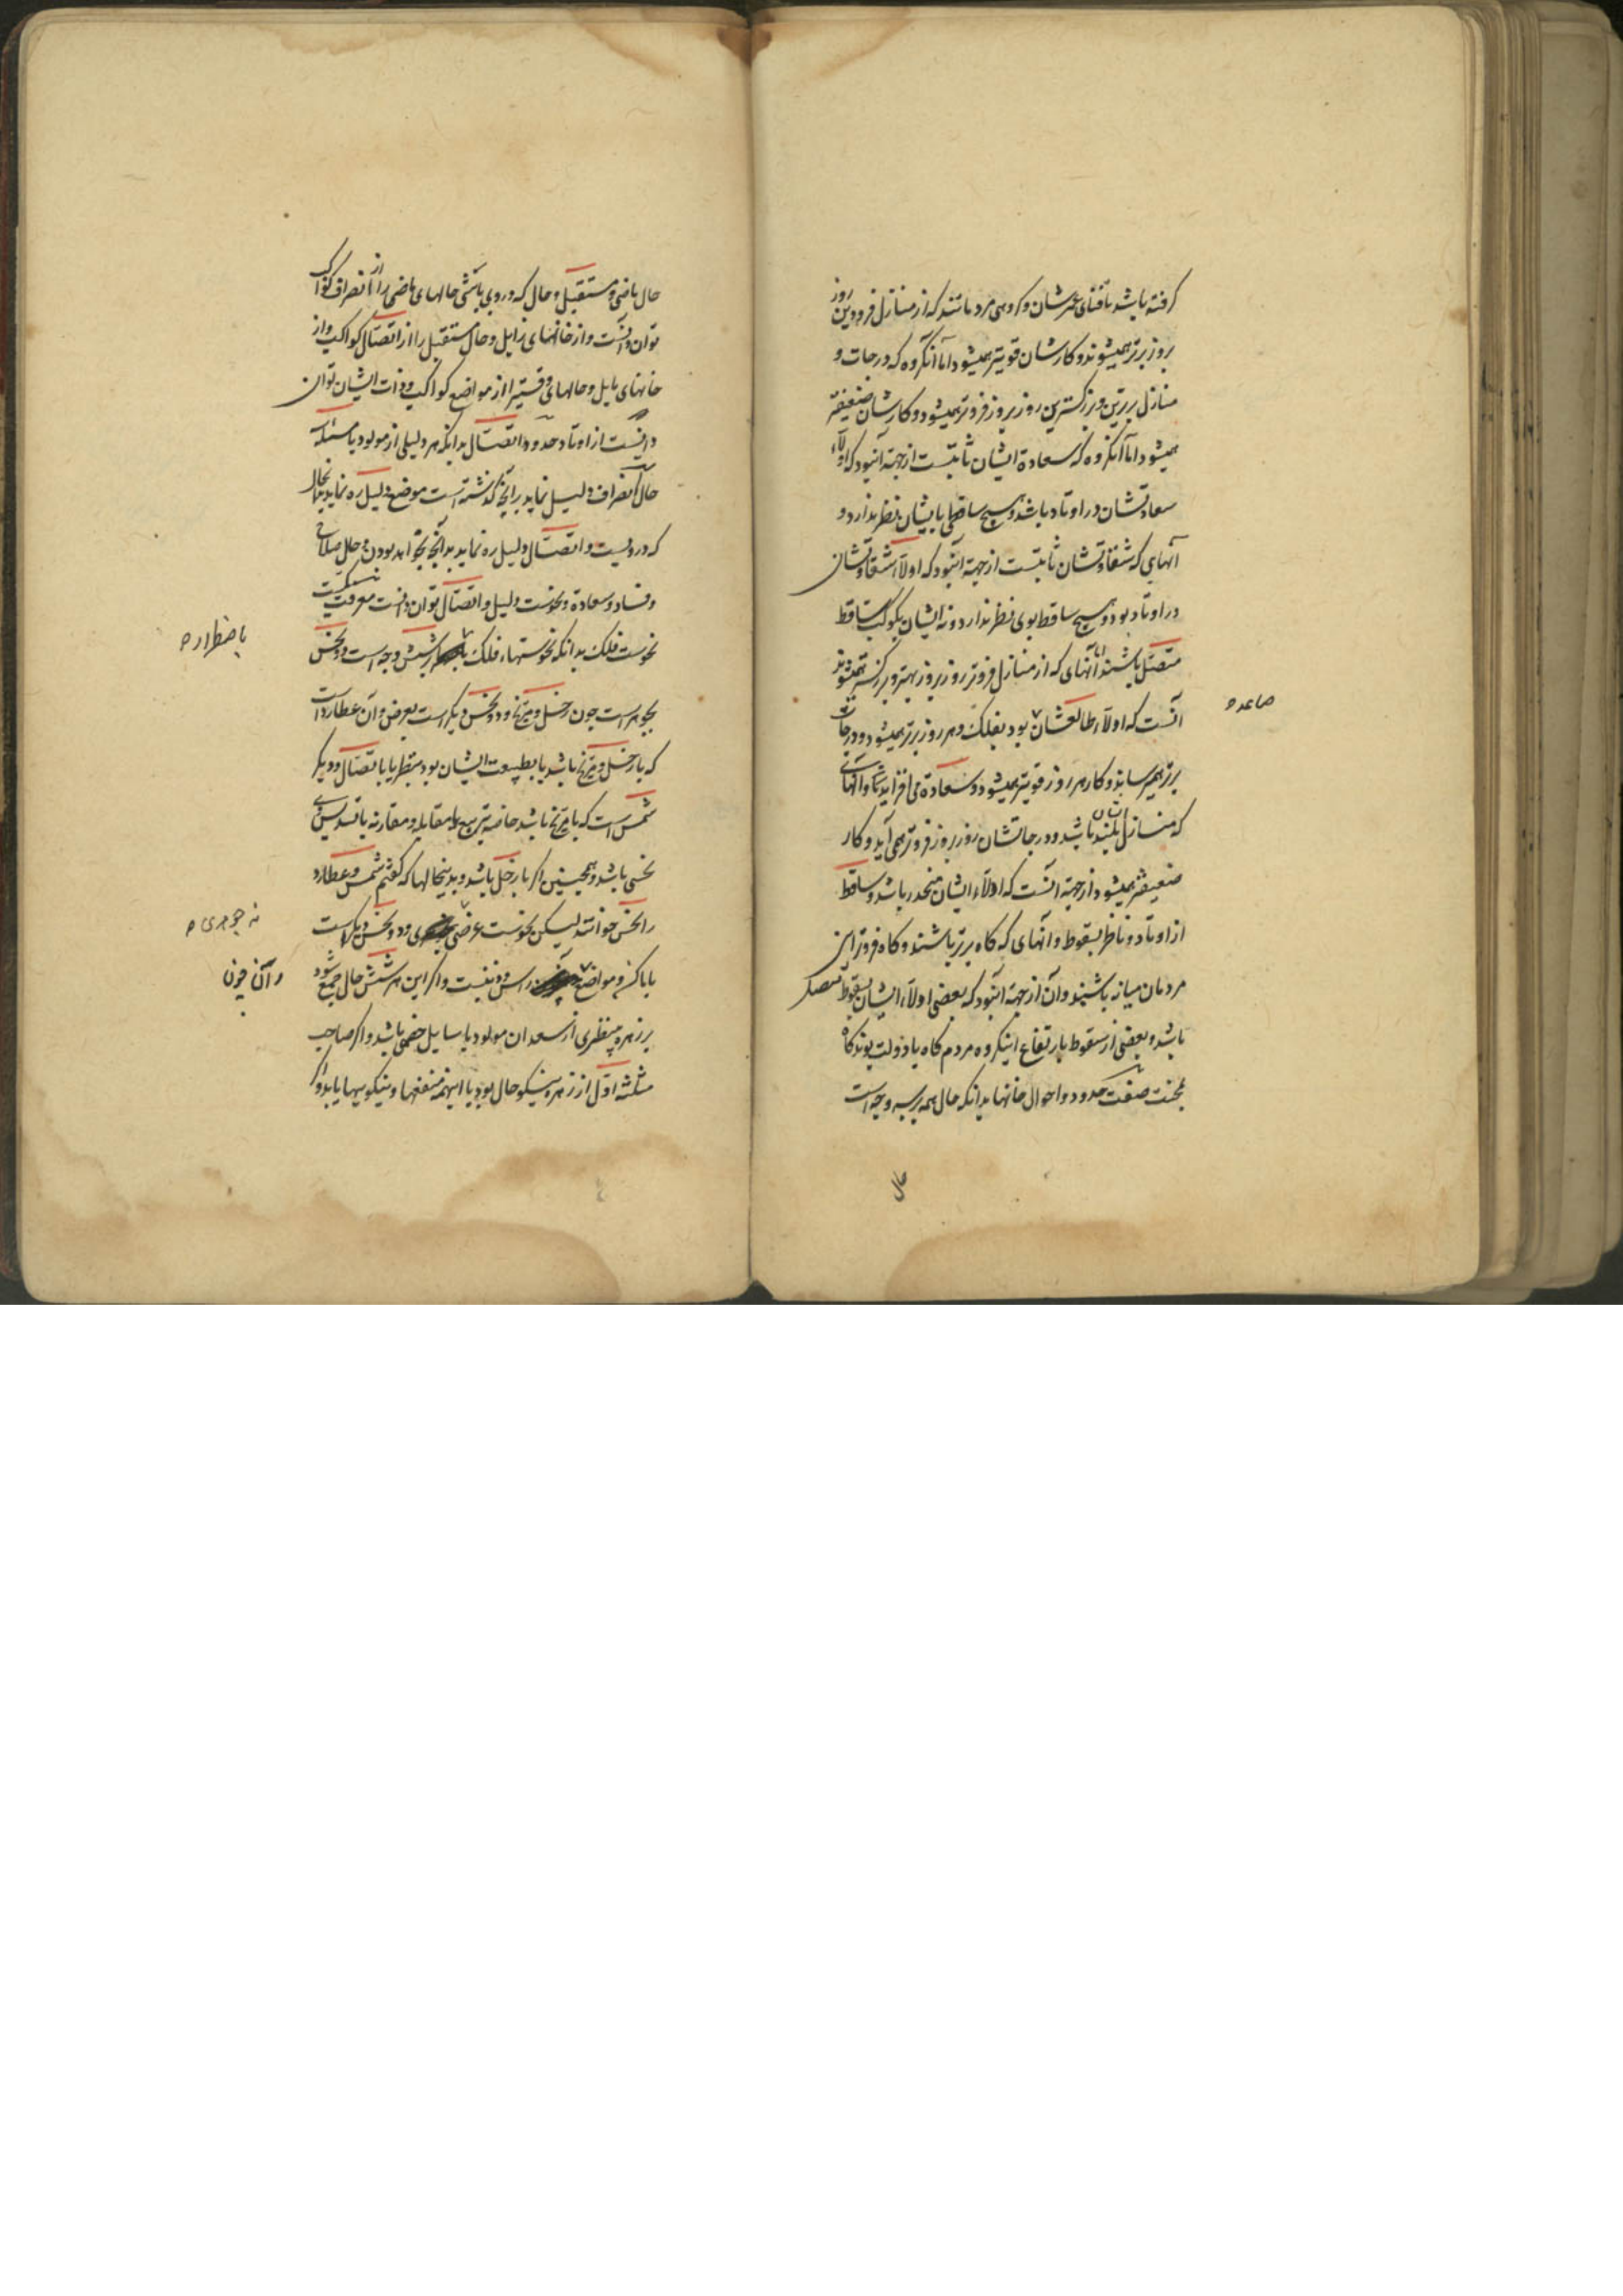 گرفته باشد تا فنای عمرشان و گروهی مردمانند که از منازل فرودین روز
بروز برتر همیشوند و کارشان قویتر همیشود اما آنگروه که درجات و
منازل برترین و بزرگترین روز بروز فروتر همیشود و کارشان ضعیفتر
همیشود اما آنگروه که سعادة ایشان ثابتست از جهة آنبود که اولاء
سعادتشان در اوتاد باشد و هیچ ساقطی بایشان نظر ندارد و
آنهایی که شقاوتشان ثابتست از جهة آنبود که اولاء شقاوتشان
در اوتاد بود و هیچ ساقط بوی نظر ندارد و نه ایشان بکوکب ساقط
متصل باشند اما آنهای که از منازل فروتر روز بروز بهتر و بزرگتر همیشوند
آنست که اولاء طالعشان بود بفلک و هر روز برتر همیشود و درجات
صاعد ه
برتر همیرساند و کار هر روز قویتر همیشود و سعادة می افزاید و آنهای
که منازل ایشان بلند باشد و درجاتشان روز بروز فروتر همی آید و کار
ضعیفتر همیشود از جهة آنست که اولاء ایشان منحدر باشد و ساقط
از اوتاد و ناظر بسقوط و آنهای که گاه برتر باشند و گاه فروتر این
مردمان میانه باشند و آن از جهة آنبود که بعضی اولاء ایشان بسقوط متصل
باشد و بعضی از سقوط بارتفاع اینگروه مردم گاه با دولت بوند گاه
بمحنت صفت حدود و احوال خانها بدانکه حال همه بر سه وجه است
حال
حال ماضی و مستقبل و حال که در وی باشی حالهای ماضی را از انصراف کواکب
توان دانست و از خانهای زایل و حال مستقبل را از اتصال کواکب و از
خانهای مایل و حالهای وقتی را از مواضع کواکب و ذات ایشان توان
دانست از اوتاد حدود اتصال بدانکه هر دلیلی از مولود یا مسئله
حال انصراف دلیل نماید بر آنچه گذشته است موضع دلیل ره نماید بحال
که درویست و اتصال دلیل ره نماید بدانچه بخواهد بودن و حال صلاح
و فساد و سعادة و نحوست دلیل و اتصال توان دانست معرفت
نحوست فلک بدانکه نحوستهاء فلک بر شش وجه است دو نحس
باضطرار ه
بجوهر است چون زحل و مریخ و دو نحس دیگر است بعرض و آن عطارد است
که با زحل و مریخ باشد یا بطبیعت ایشان بود بنظر یا باتصال و دیگر
شمس است که با مریخ باشد خاصه تربیع یا مقابله و مقارنه یا تسدیس
نحسی باشد و همچنین اگر با زحل باشد و بدینحالها که گفتم شمس و عطارد
را نحس خوانند لیکن نحوست عرضی و دو نحس دیگر است
نه جوهری ه
باماکن و مواضع راس و ذنبست و اگر این هر شش حال جمع شود
و آن چون
بر زهره بنظری از سعد آن مولود یا سایل خصمی باشد و اگر صاحب
مثلثه اول از زهره نیکو حال بود با اینهمه منفعتها و نیکوییها یابد و اگر